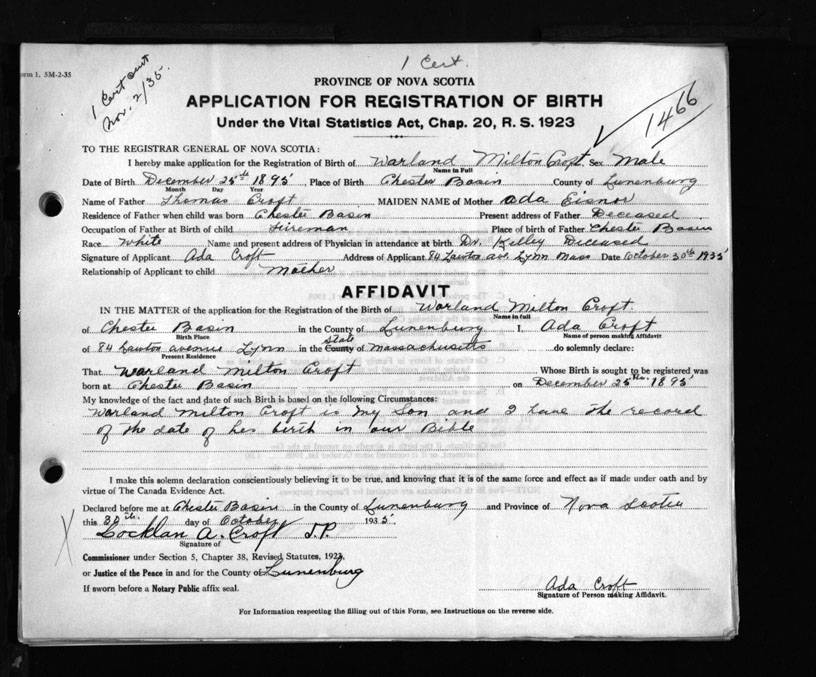 1 Cert.
Form 1. 5M-2-35
1 Cert sent
Nov. 2/35.
PROVINCE OF NOVA SCOTIA
APPLICATION FOR REGISTRATION OF BIRTH
Under the Vital Statistics Act, Chap. 20, R. S. 1923
1466
TO THE REGISTRAR GENERAL OF NOVA SCOTIA:
I hereby make application for the Registration of Birth of Warland Milton Croft. Sex Male
Name in Full
Date of Birth December 25th 1895, Place of Birth Chester Basin County of Lunenburg
Month Day Year
Name of Father Thomas Croft MAIDEN NAME of Mother Ada Eisnor
Residence of Father when child was born Chester Basin Present address of Father Deceased
Occupation of Father at Birth of child Fireman Place of birth of Father Chester Basin
Race White Name and present address of Physician in attendance at birth Dr. Kelley Diceased
Signature of Applicant Ada Croft Address of Applicant 84 Lawton av. Lynn Mass Date October 30th 1935
Relationship of Applicant to child Mother
AFFIDAVIT
IN THE MATTER of the application for the Registration of the Birth of Warland Milton Croft
Name in full
of Chester Basin in the County of Lunenburg I. Ada Croft
Birth Place Name of person making Affidavit
of 84 Lawton avenue Lynn in the County of Massachusitts do solemnly declare:
State
Present Residence
That Warland Milton Croft Whose Birth is sought to be registered was
born at Chester Basin on December 25th 1895
My knowledge of the fact and date of such Birth is based on the following Circumstances:
Warland Milton Croft is my Son and I have the record
of the date of his birth in our Bible
I make this solemn declaration conscientiously believing it to be true, and knowing that it is of the same force and effect as if made under oath and by
virtue of The Canada Evidence Act.
Declared before me at Chester Basin in the County of Lunenburg and Province of Nova Scotia
this 30th day of October 1935.
Locklan A. Croft J.P.
Signature of
X
Commissioner under Section 5, Chapter 38, Revised Statutes, 1923.
or Justice of the Peace in and for the County of Lunenburg
If sworn before a Notary Public affix seal.
Ada Croft
Signature of Person making Affidavit.
For Information respecting the filling out of this Form, see Instructions on the reverse side.